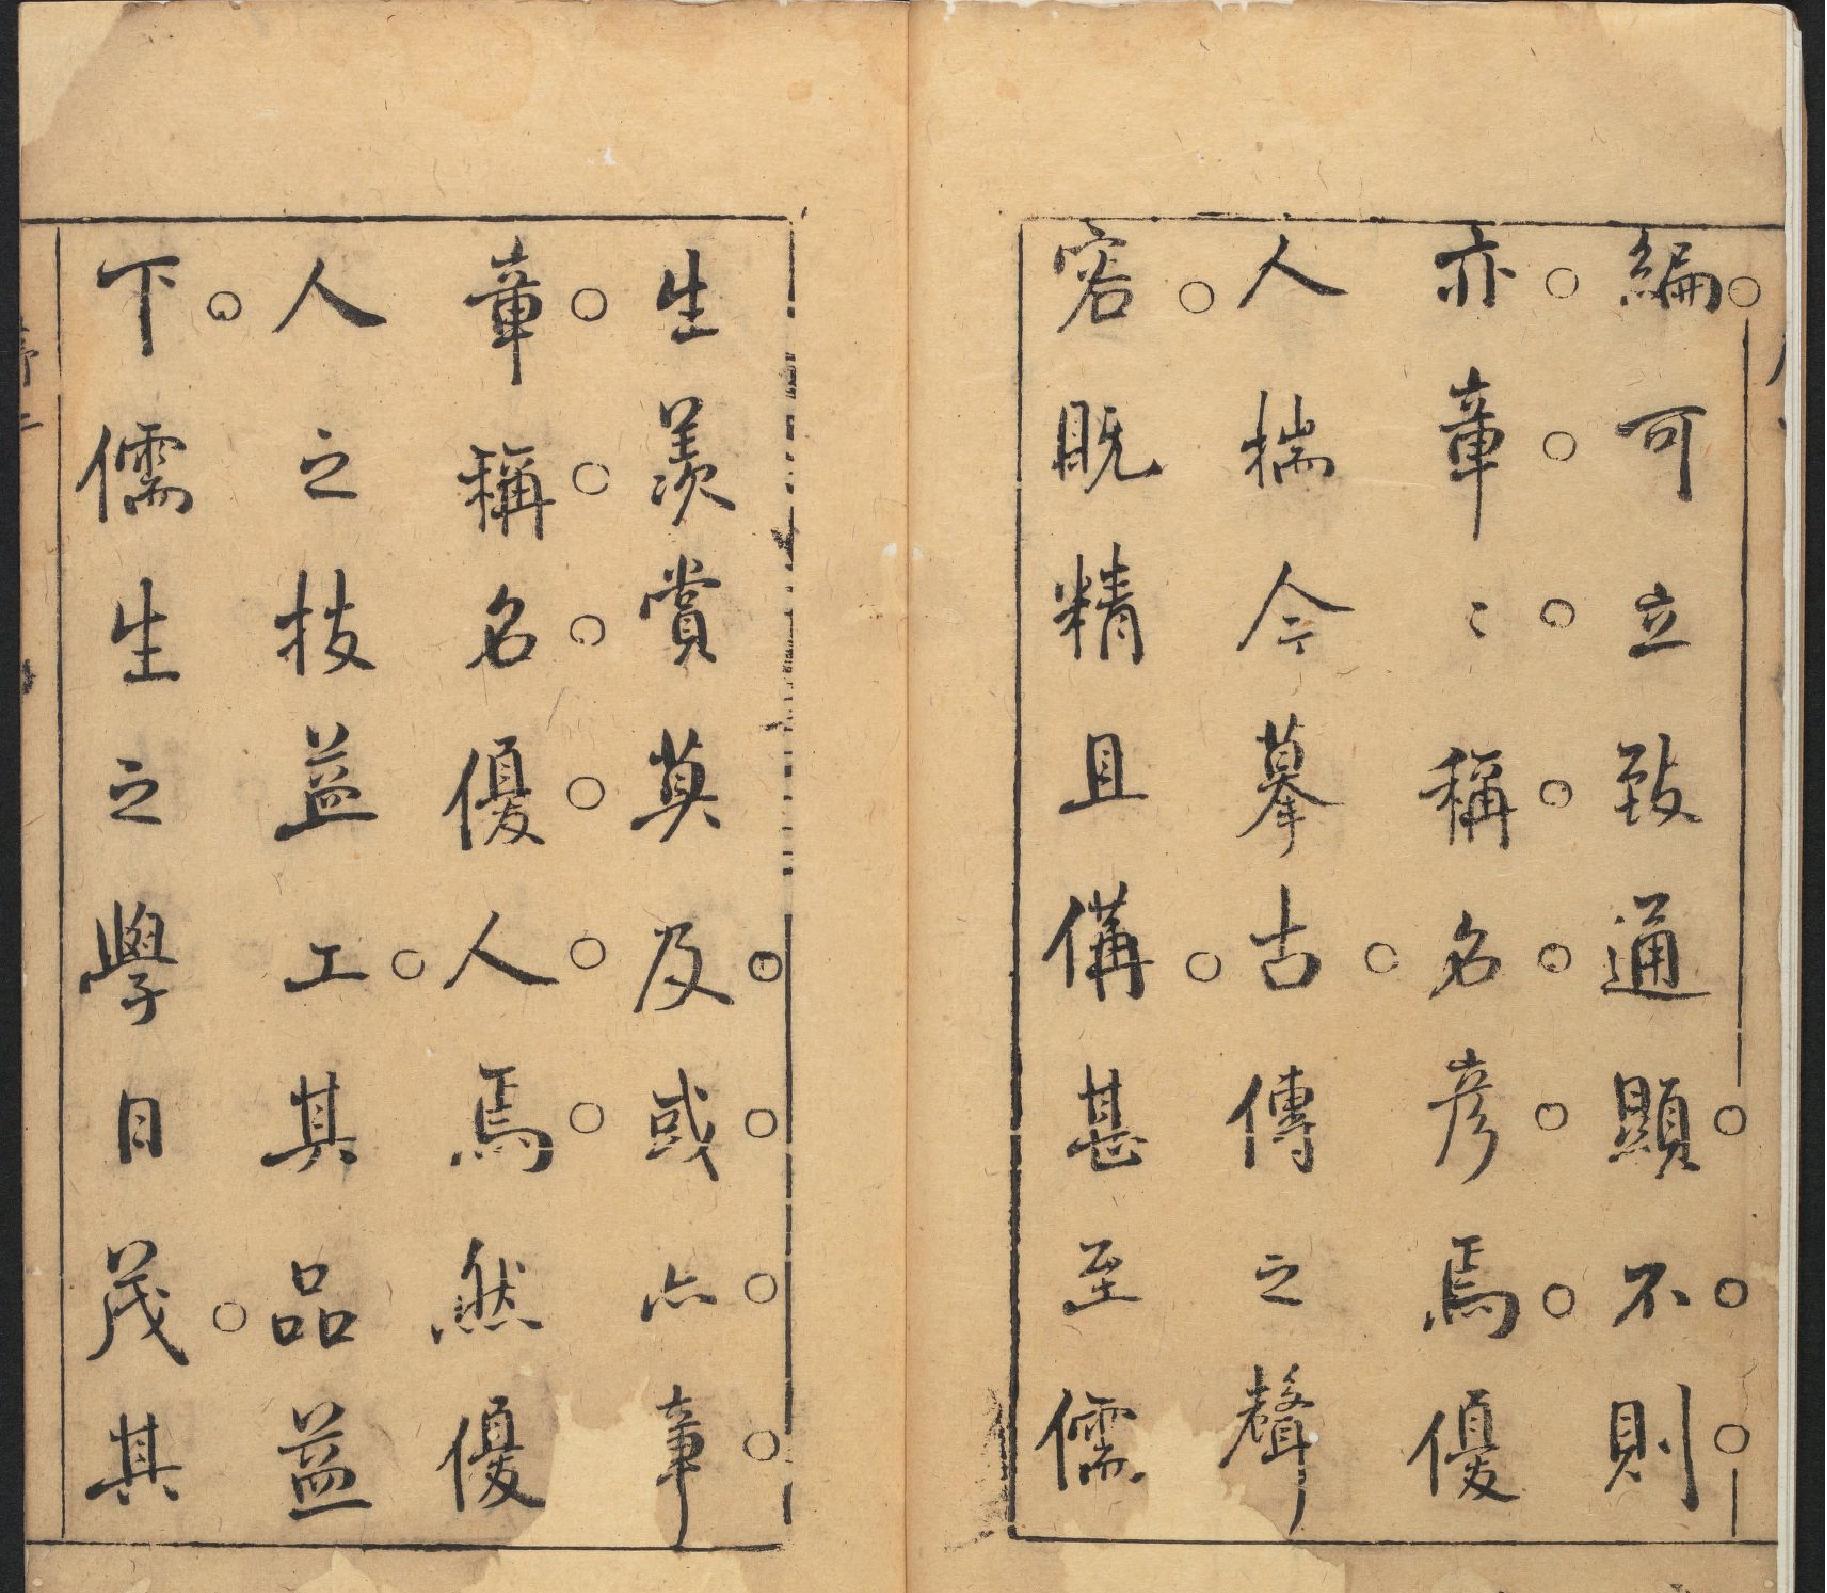 編可立致通顯不則
亦章〻稱名彥焉優
人揣今摹古傳之聲
容既精且備甚至儒
生羨賞莫及或亦章
章稱名優人焉然優
人之技益工其品益
下儒生之學日茂其